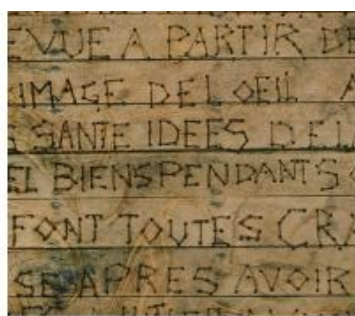 EVUE A PARTIR DE
IMAGE DE L OEIL A
SANTE IDEES DE L
EL BIENS PENDANTS
FONT TOUTES CRA
SE APRES AVOIR